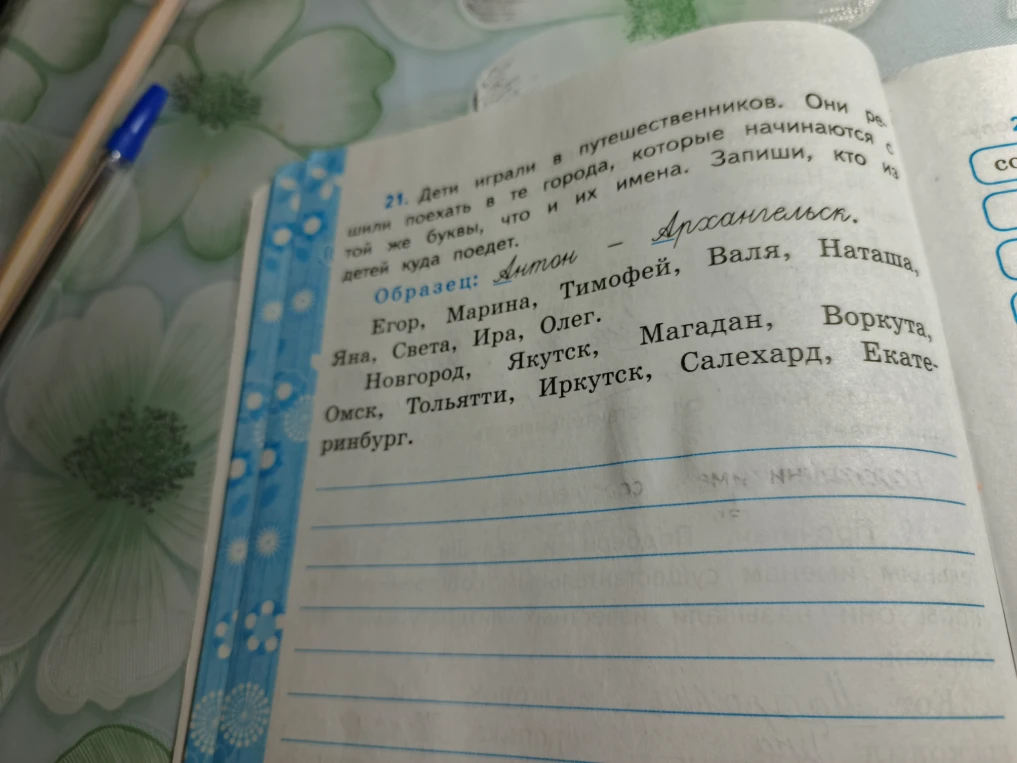 21. Дети играли в путешественников. Они ре-
шили поехать в те города, которые начинаются с
той же буквы, что и их имена. Запиши, кто из
детей куда поедет.
Образец: Антон – Архангельск.
Егор, Марина, Тимофей, Валя, Наташа,
Яна, Света, Ира, Олег.
Новгород, Якутск, Магадан, Воркута,
Омск, Тольятти, Иркутск, Салехард, Екате-
ринбург.